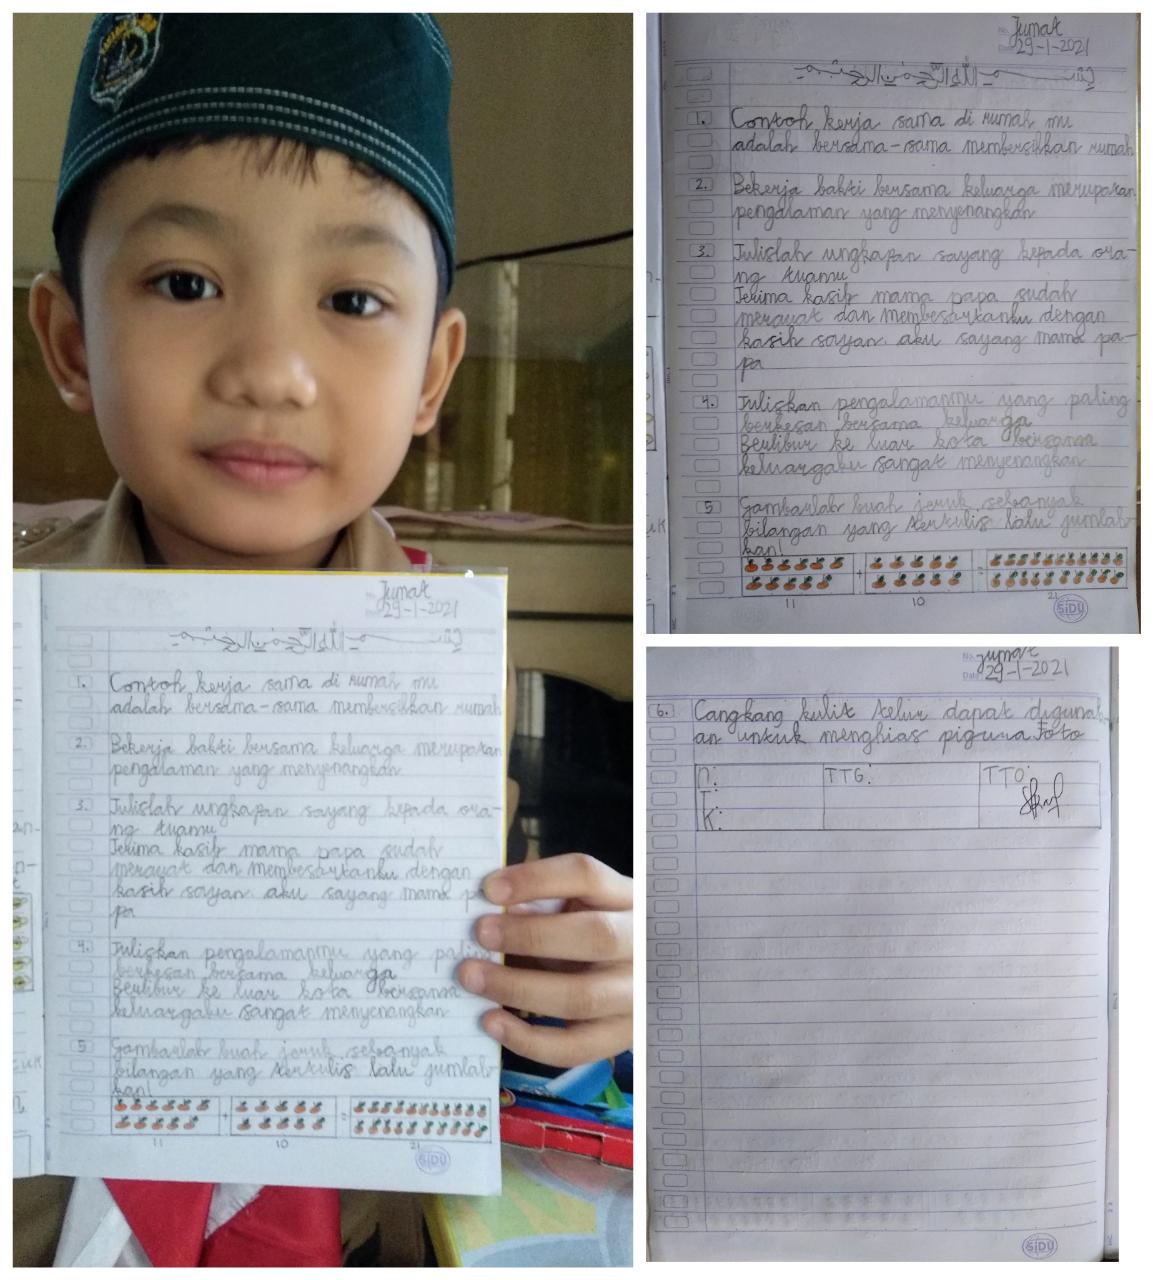 Jumat
29-1-2021
1. Contoh kerja sama di rumah mu
adalah bersama-sama membersihkan rumah
2. Bekerja bakti bersama keluarga merupakan
pengalaman yang menyenangkan
3. Tulislah ungkapan sayang kepada ora-
ng tuamu
Terima kasih mama papa sudah
merawat dan membesarkanku dengan
kasih sayan. aku sayang mama pa
pa
4. Tuliskan pengalamanmu yang paling
berkesan bersama keluarga
Berlibur ke luar kota bersama
keluargaku sangat menyenangkan
5 Gambarlah buah jeruk sebanyak
bilangan yang tertulis lalu jumlah
kan!
+ =
11 10 21
SiDU
No. Jumat
Date 29-1-2021
1. Contoh kerja sama di rumah mu
adalah bersama-sama membersihkan rumah
2. Bekerja bakti bersama keluarga merupakan
pengalaman yang menyenangkan
3. Tulislah ungkapan sayang kepada ora-
ng tuamu
Terima kasih mama papa sudah
merawat dan membesarkanku dengan
kasih sayan. aku sayang mama pa-
pa
4. Tuliskan pengalamanmu yang paling
berkesan bersama keluarga
Berlibur ke luar kota bersama
keluargaku sangat menyenangkan
5 Gambarlah buah jeruk sebanyak
bilangan yang tertulis lalu jumlah
kan!
+ =
11 10 21
SiDU
No. Jumat
Date 29-1-2021
6. Cangkang kulit telur dapat digunak
an untuk menghias pigura Foto
N: TTG: TTO:
T:
K:
SiDU